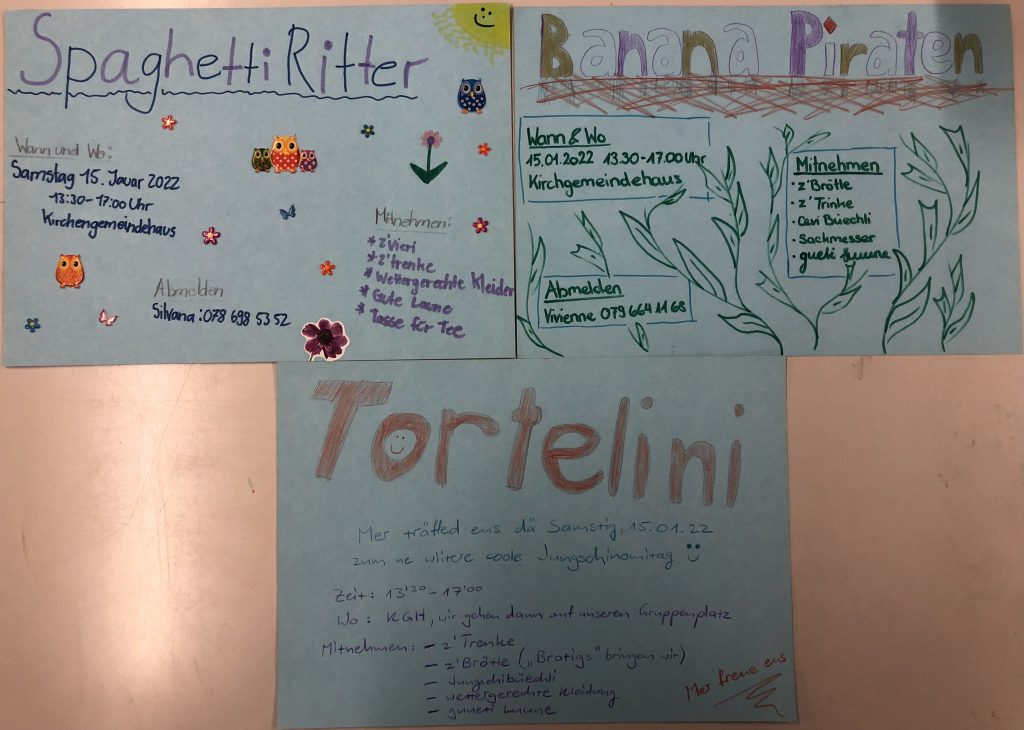 Spaghetti Ritter
Wann und Wo:
Samstag 15. Januar 2022
13:30-17:00 Uhr
Kirchengemeindehaus
Mitnehmen:
* z'Vieri
* z'trenke
* Wettergerechte Kleider
* Gute Laune
* Tasse für Tee
Abmelden
Silvana: 078 698 53 52
Banana Piraten
Wann & Wo
15.01.2022 13.30-17.00 Uhr
Kirchgemeindehaus
Mitnehmen
· z'Brötle
· z'Trinke
· Cevi Büechli
· Sackmesser
· gueti Luune
Abmelden
Vivienne 079 664 11 68
Tortelini
Mer träffed eus dä Samstig, 15.01.22
zum ne wiitere coole Jungschinomitag
Zeit: 13'30 - 17'00
Wo: KGH, wir gehen dann auf unseren Gruppenplatz
Mitnehmen: - z'Trenke
- z'Brötle („Brotigs" bringen wir)
- Jungschibüechli
- wettergerechte Kleidung
- gueti Luune
Mer freue eus